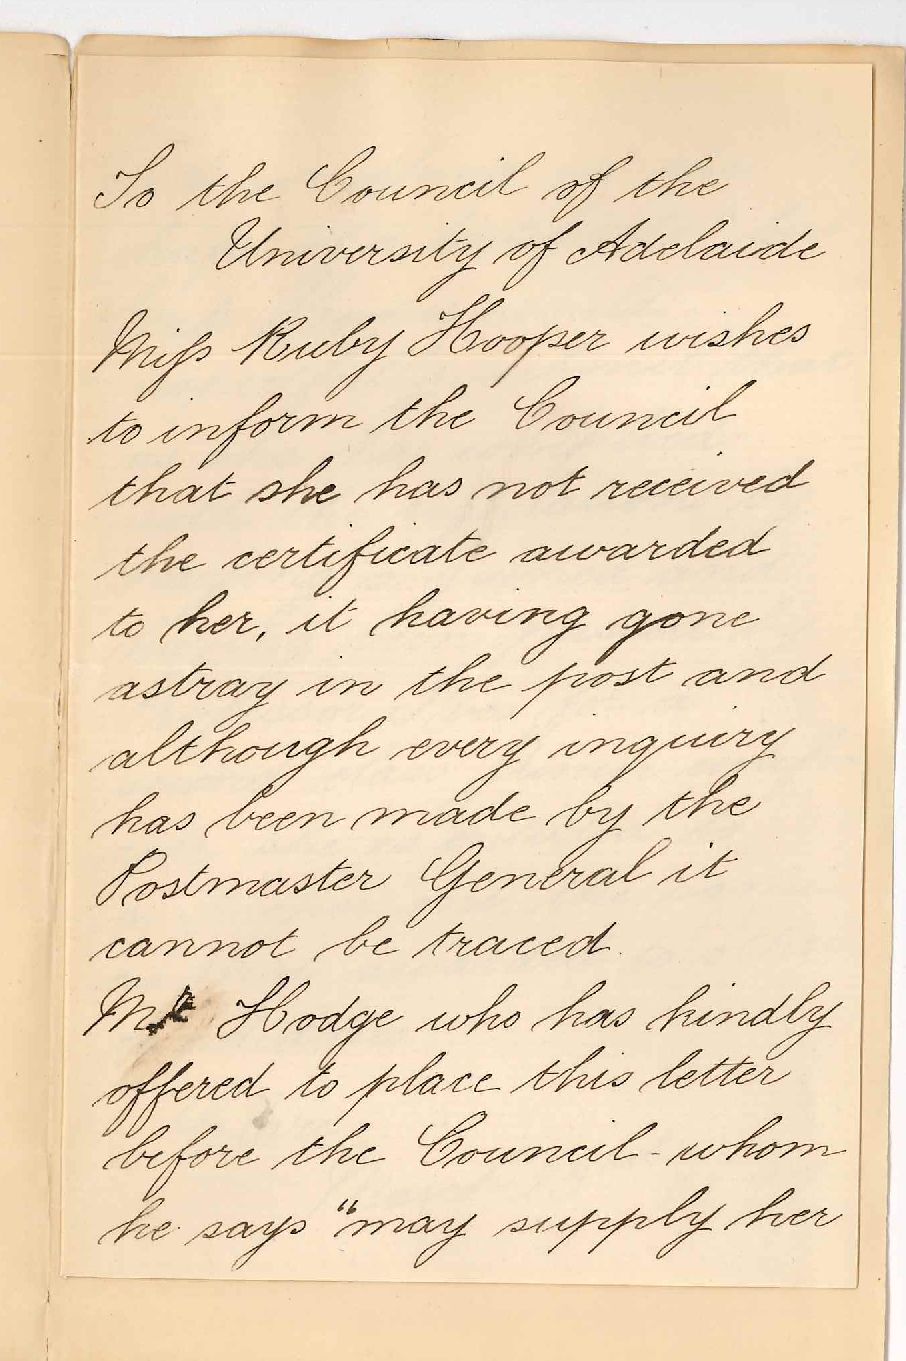 To the Council of the
University of Adelaide
Miss Ruby Hooper wishes
to inform the Council
that she has not received
the certificate awarded
to her, it having gone
astray in the post and
although every inquiry
has been made by the
Postmaster General it
cannot be traced.
Mr Hodge who has kindly
offered to place this letter
before the Council - whom
he says "may supply her